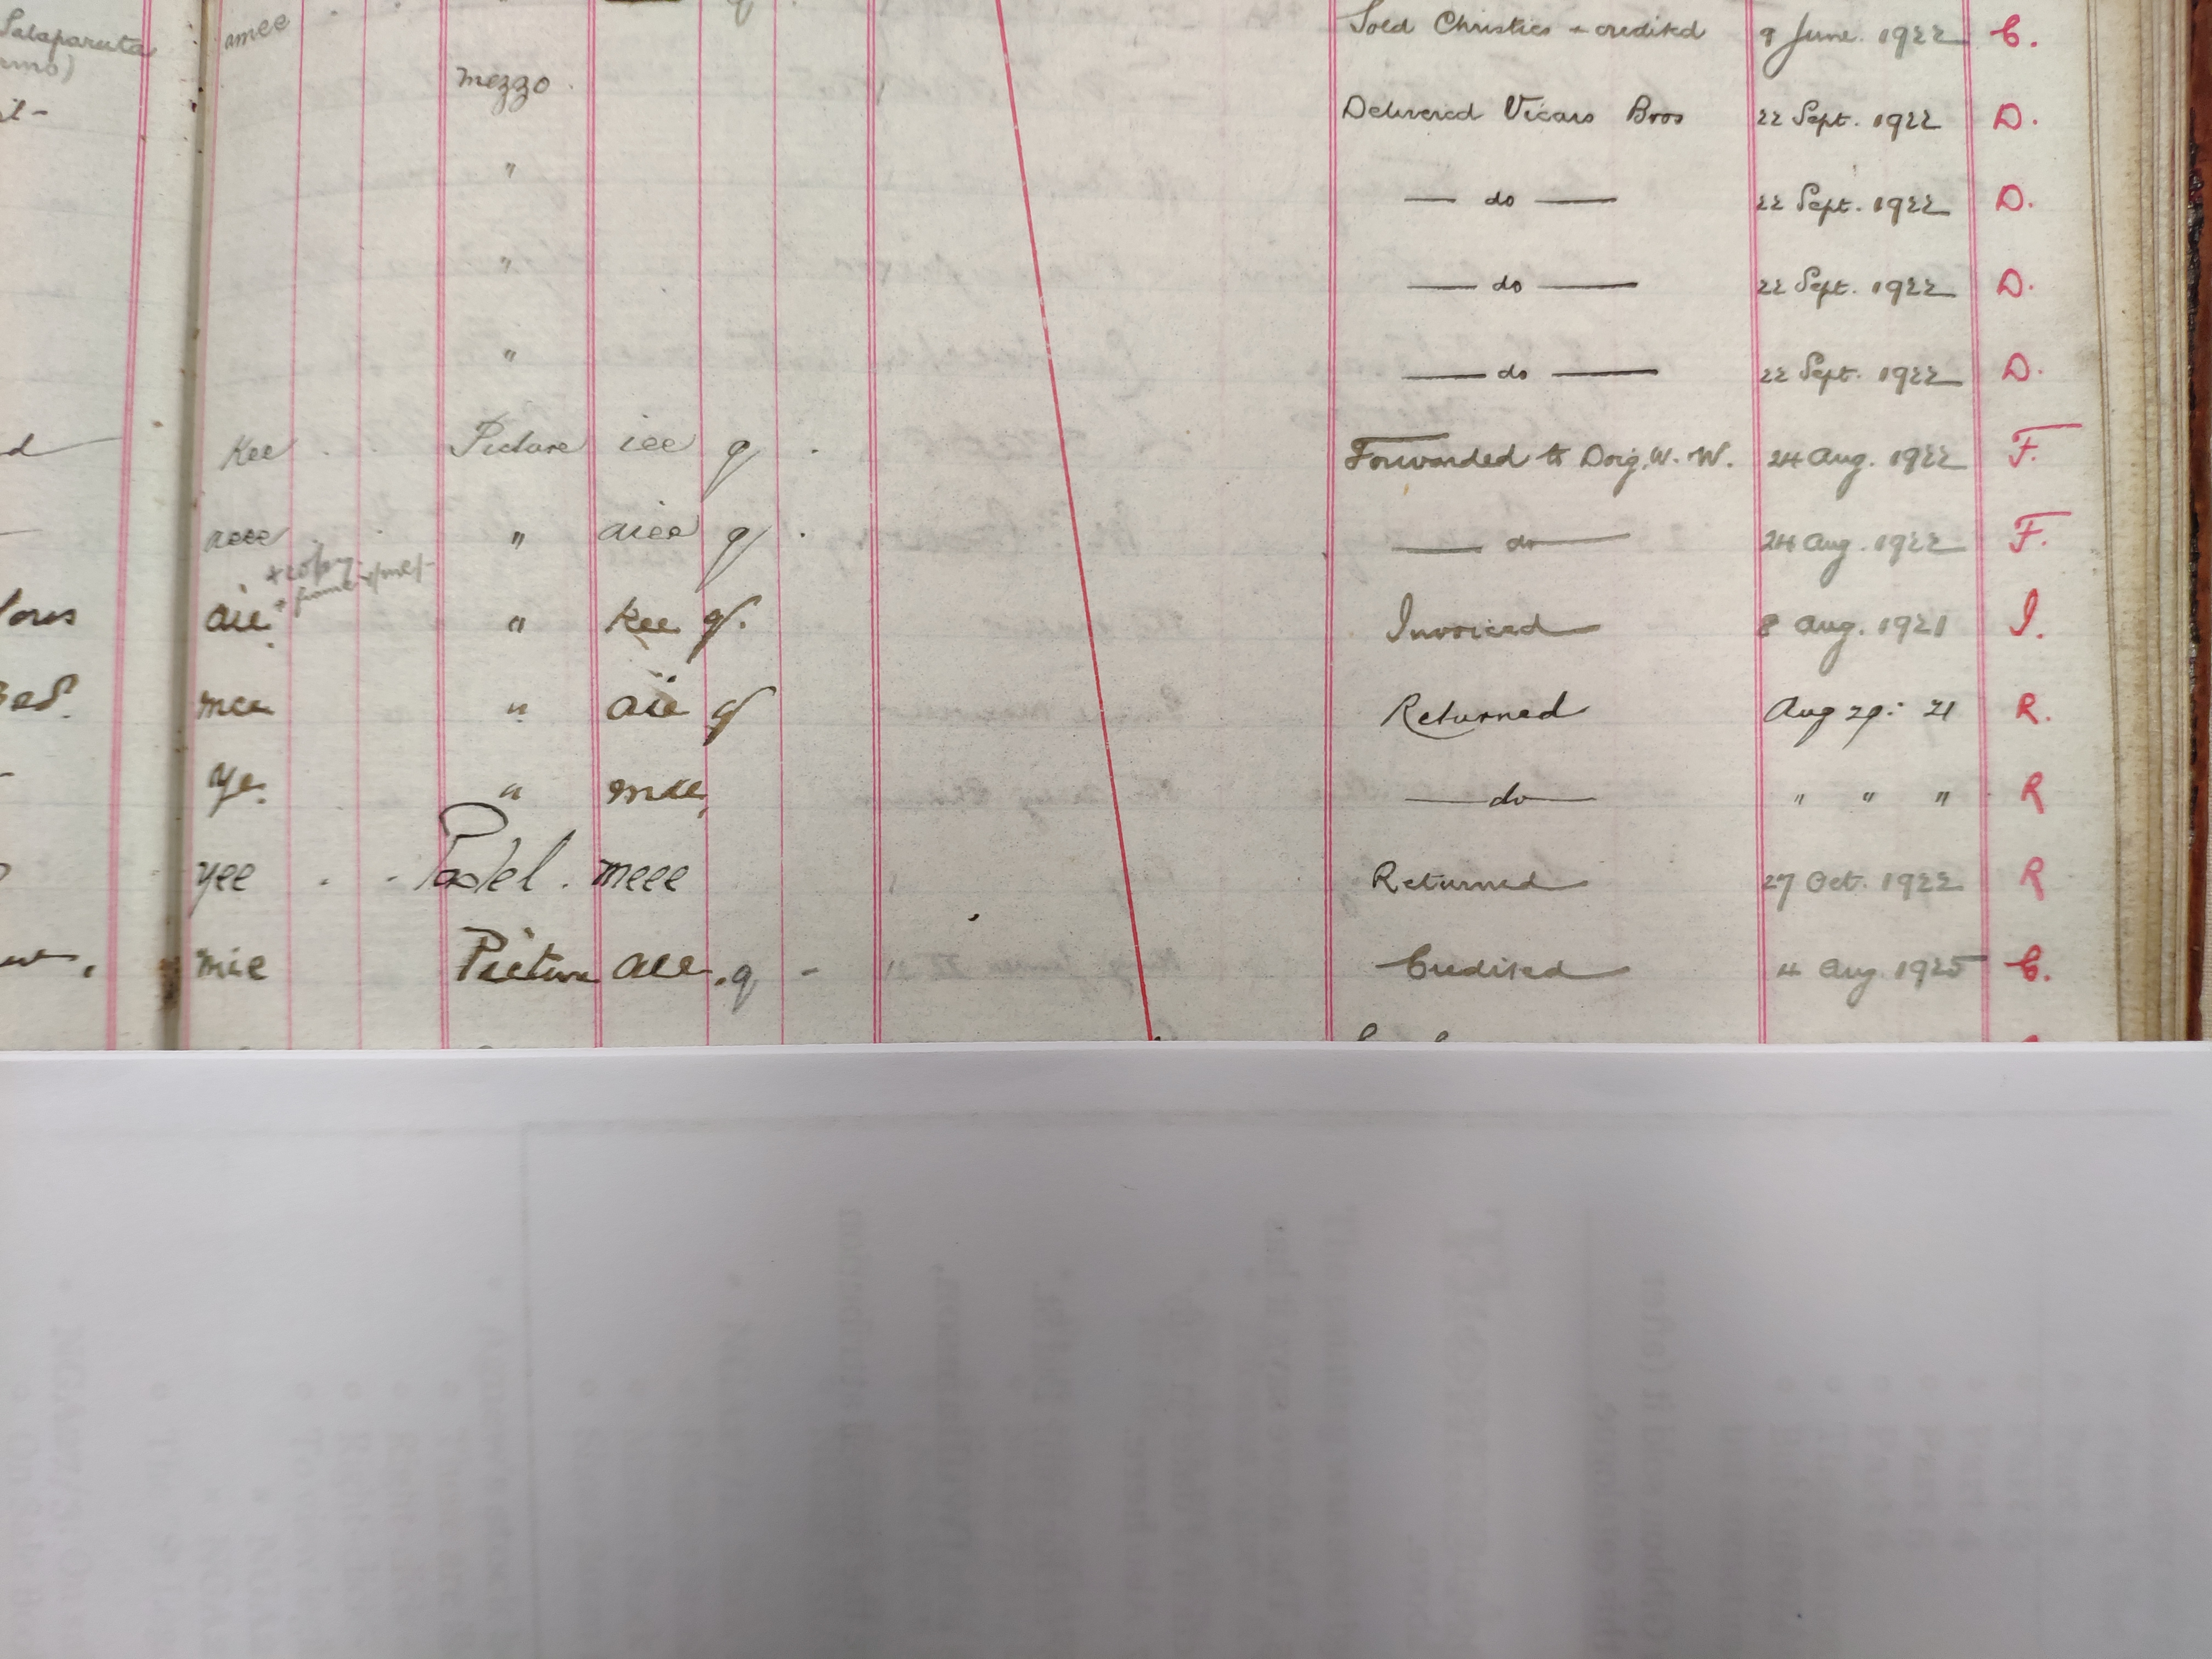 Salaparuta amee Sold Christies + credited 9 June. 1922 C.
mezzo. Delivered Vicars Bros 22 Sept. 1922 D.
" — do — 22 Sept. 1922 D.
" — do — 22 Sept. 1922 D.
" — do — 22 Sept. 1922 D.
d Kee Picture iee q Forwarded to Doig, W. W. 24 Aug. 1922 F.
aeee " aiee q — do — 24 Aug. 1922 F.
+ copy
+ frame
aie " kee q. Invoiced 8 Aug. 1921 I.
mee " aie q Returned Aug 29: 21 R.
ye. " mee — do — " " " R
yee Pastel. meee Returned 27 Oct. 1922 R
mie Picture aee. q - Credited 4 Aug. 1925 C.